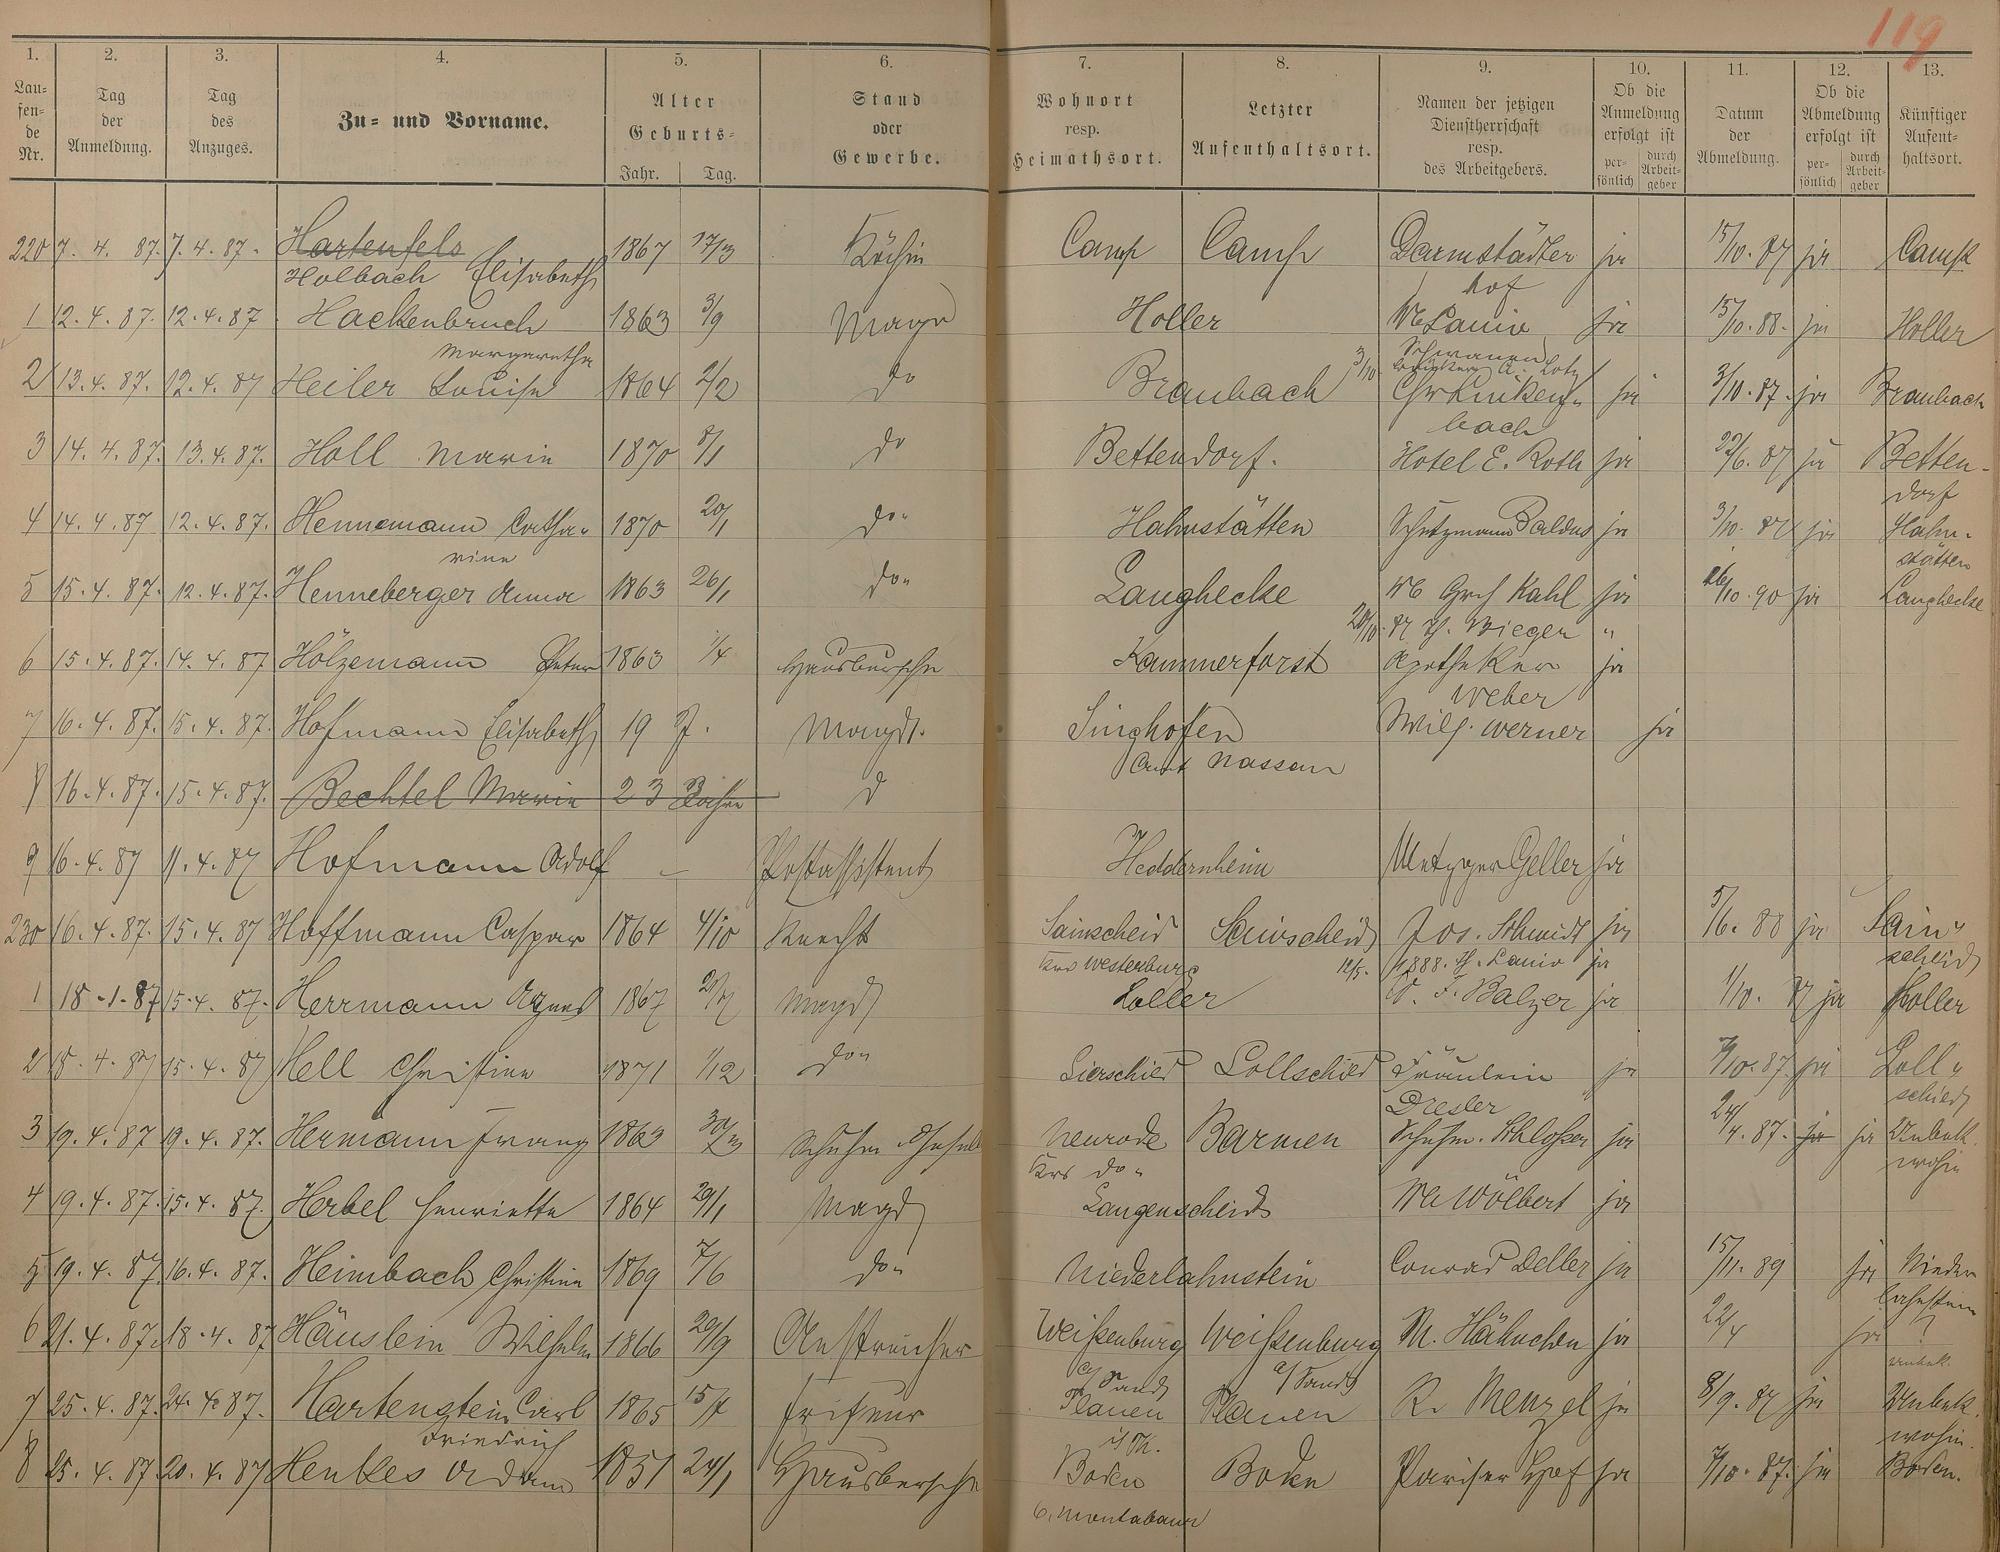 119
1. 2. 3. 4. 5. 6. 7. 8. 9. 10. 11. 12. 13.
Laufende Nr. Tag der Anmeldung. Tag des Anzuges. Zu- und Vorname. Alter Geburts- Jahr. Tag. Stand oder Gewerbe. Wohnort resp. Heimathsort. Letzter Aufenthaltsort. Namen der jetzigen Dienstherrschaft resp. des Arbeitgebers. Ob die Anmeldung erfolgt ist persönlich durch Arbeitgeber Datum der Abmeldung. Ob die Abmeldung erfolgt ist persönlich durch Arbeitgeber Künftiger Aufenthaltsort.
220 7. 4. 87. 7. 4. 87. Hartenfels 1867 17/3 Köchin Camp Camp Darmstädter ja 15/10. 87 ja Camp
Holbach Elisabeth hof
1 12. 4. 87. 12. 4. 87 Hackenbruch 1863 3/9 Magd Holler We Lanio ja 15/10. 88. ja Holler
Margaretha Schwanen
2 13. 4. 87. 12. 4. 87 Heiler Louise 1864 2/2 do Braubach 3/10 Chr Linken- ja 3/10. 87. ja Braubach
bach
3 14. 4. 87. 13. 4. 87. Holl Marie 1870 8/1 do Bettendorf. Hotel E. Roth ja 22/6. 87 ja Betten-
dorf
4 14. 4. 87 12. 4. 87. Hennemann Catha- 1870 20/1 do Hahnstätten Schutzmann Baldus ja 3/10. 87 ja Hahn-
rine stätten
5 15. 4. 87. 12. 4. 87. Henneberger Anna 1863 26/1 do Langhecke We Gch Kahl ja 16/10. 90 ja Langhecke
20/10. 87 H. Rieger "
6 15. 4. 87. 14. 4. 87 Hölzemann Peter 1863 1/4 Hausbursche Kammerforst Apotheker ja
Weber
7 16. 4. 87. 15. 4. 87. Hofmann Elisabeth 19 J. Magd. Singhofen Wilh. Werner ja
Amt Nassau
8 16. 4. 87. 15. 4. 87. Bechtel Marie 23 d
9 16. 4. 87 11. 4. 87 Hofmann Adolf - Postassistent Heddernheim Metzger Geller ja
230 16. 4. 87. 15. 4. 87 Hoffmann Caspar 1864 4/10 Knecht Sainscheid Sainscheid Jos. Schmidt ja 5/6. 88 ja Sain-
Krs Westerburg 12/5. 1888. H. Lanio ja scheid
1 18. 1. 87 15. 4. 87. Herrmann Agnes 1867 Magd Holler W. F. Balzer ja 1/10. 87 ja Holler
2 18. 4. 87 15. 4. 87 Hell Christine 1871 1/12 do Lierschied Lollschied Fräulein ja 7/10. 87. ja Loll-
Dresler schied
3 19. 4. 87 19. 4. 87. Hermann Franz 1863 30/3 Neurode Barmen Schuhm. Schlosser ja 24/4. 87. ja ja Unbek.
Krs do wohin
4 19. 4. 87. 15. 4. 87. Herbel Henriette 1864 29/1 Magd Langenscheid We Wölbert ja
5 19. 4. 87 16. 4. 87. Heimbach Christine 1869 7/6 do Niederlahnstein Conrad Deller ja 15/11. 89 ja Nieder
lahnstein
6 21. 4. 87. 18. 4. 87 Häuslein Wilhelm 1866 29/9 Anstreicher Weißenburg Weißenburg M. Hähnchen ja 22/4 ja
a/ Sand a/ Sand unbek.
7 25. 4. 87. 24. 4. 87. Hartenstein Carl 1865 15/7 Friseur Plauen Plauen R. Menzel ja 8/9. 87 ja Unbek.
Friedrich wohin.
8 25. 4. 87 20. 4. 87 Henkes Adam 1851 24/1 Hausbursche Boden Boden Pariser Hof ja 7/10. 87. ja Boden.
b. Montabaur